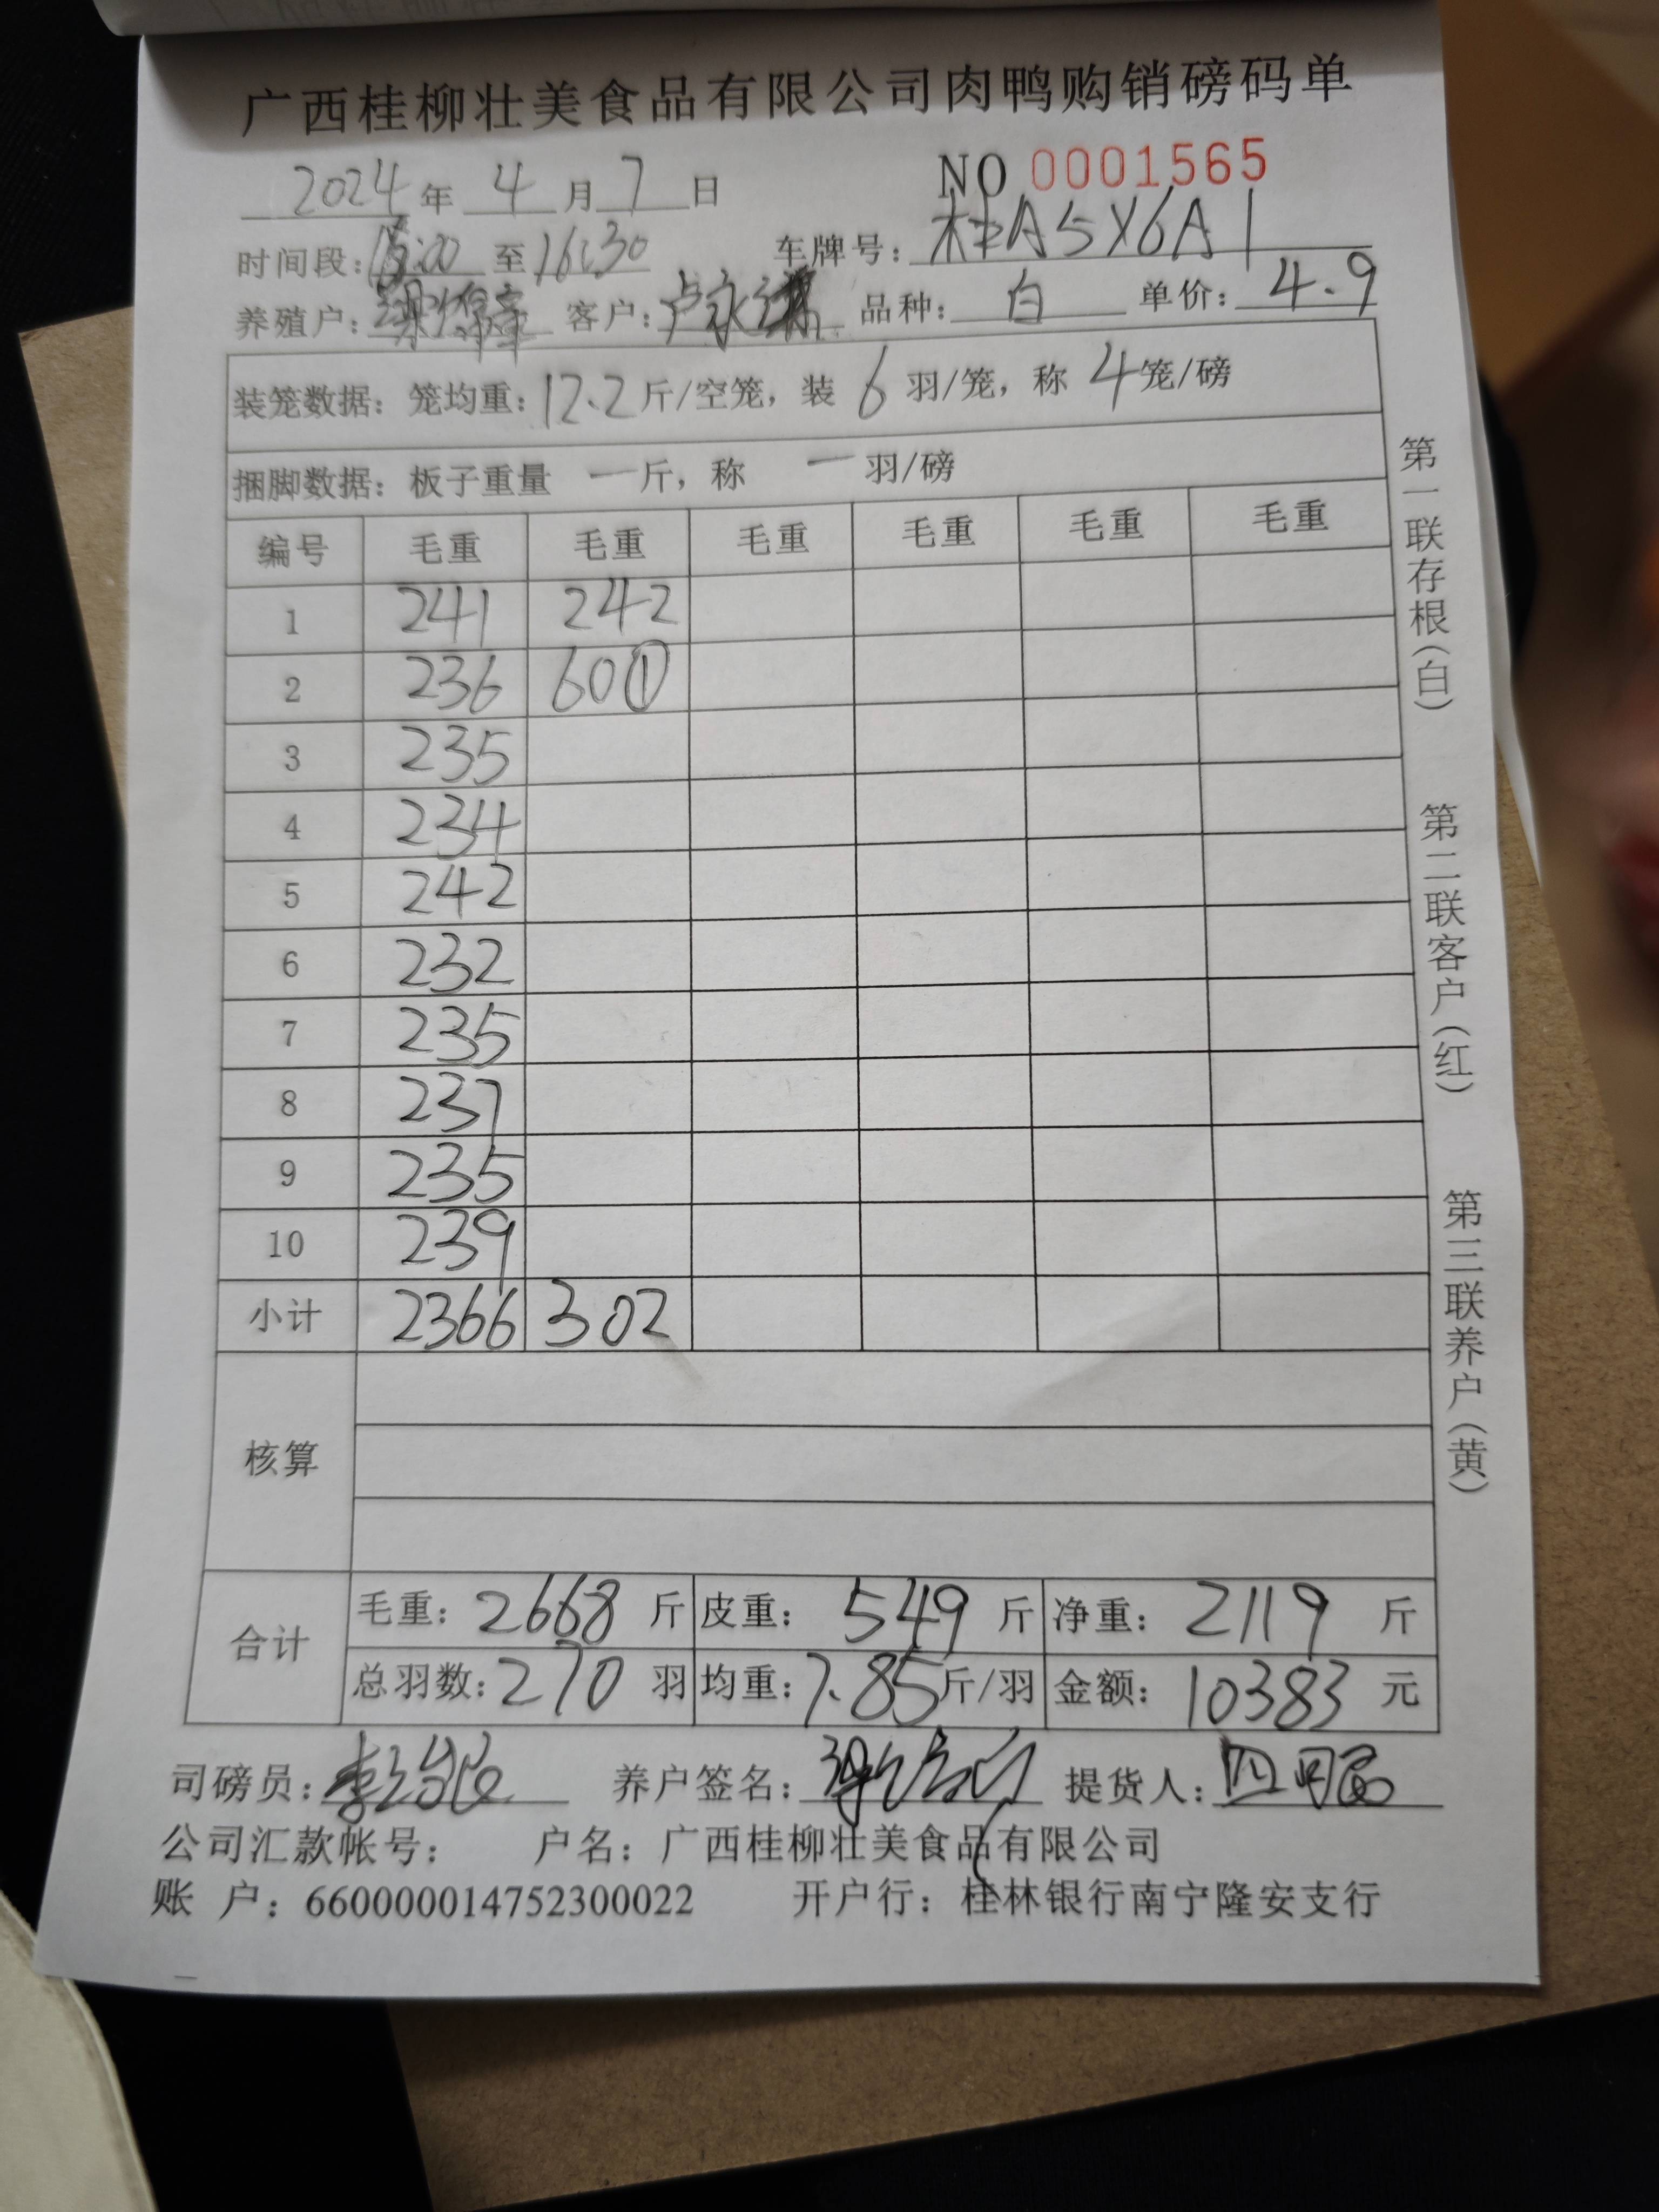 广西桂柳壮美食品有限公司肉鸭购销磅码单
2024年 4月7日 NO 0001565
时间段: 至16:30 车牌号: 桂A5X6A1
养殖户: 客户: 卢永 品种: 白 单价: 4.9
装笼数据: 笼均重: 12.2斤/空笼, 装 6 羽/笼, 称 4笼/磅
捆脚数据: 板子重量 一斤, 称 一羽/磅
编号 毛重 毛重 毛重 毛重 毛重 毛重
1 241 242
2 236 60①
3 235
4 234
5 242
6 232
7 235
8 237
9 235
10 239
小计 2366 302
核算
合计 毛重: 2668 斤 皮重: 549 斤 净重: 2119 斤
总羽数: 270 羽 均重: 7.85斤/羽 金额: 10383 元
司磅员: 养户签名: 提货人:
公司汇款帐号: 户名: 广西桂柳壮美食品有限公司
账 户: 660000014752300022 开户行: 桂林银行南宁隆安支行
第一联存根(白) 第二联客户(红) 第三联养户(黄)